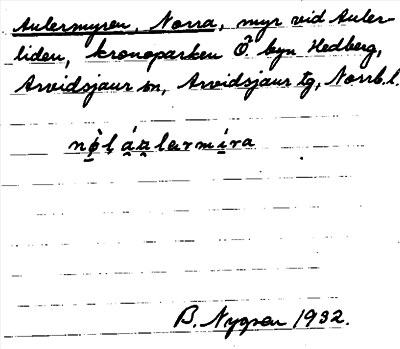 Aulermyren, Norra, myr vid Auler-
liden, kronoparken Ö byn Hedberg,
Arvidsjaur sn, Arvidsjaur tg, Norrb.l.
B. Nygren 1932.